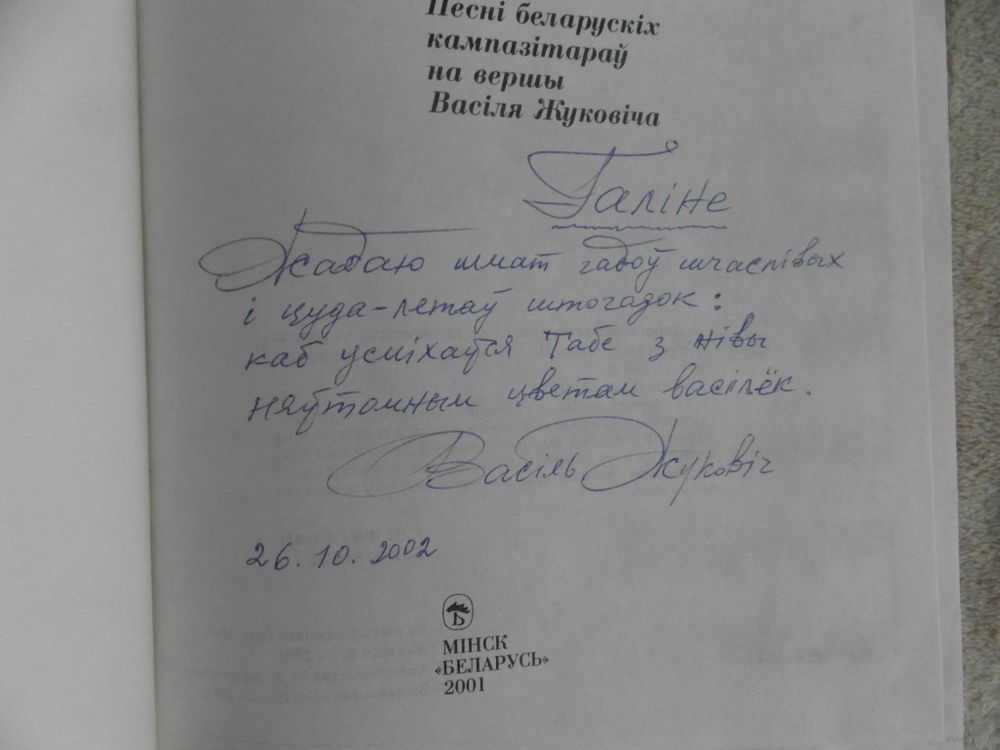 Песні беларускіх
кампазітараў
на вершы
Васіля Жуковіча
Галіне
Жадаю шмат гадоў шчаслівых
і цуда-летаў штогадок:
каб усміхаўся Табе з нівы
няўтомным цветам васілёк.
Васіль Жуковіч
26.10.2002
Б
МІНСК
«БЕЛАРУСЬ»
2001